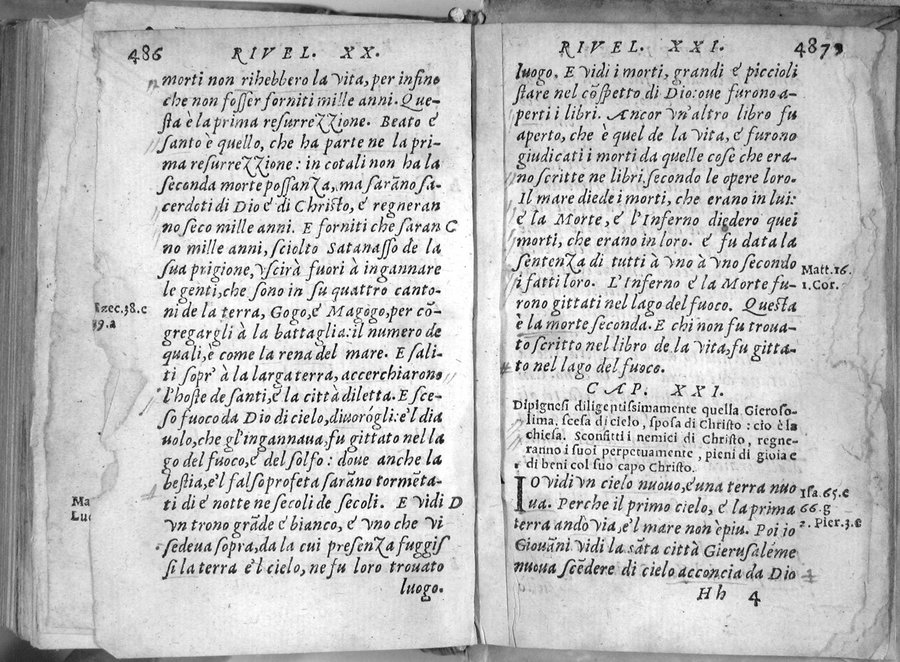 486
RIVEL. XX.
morti non rihebbero la vita, per infino
che non fosser forniti mille anni. Que-
sta è la prima resurrezzione. Beato e
santo è quello, che ha parte ne la pri-
ma resurrezzione: in cotali non ha la
seconda morte possanza, ma sarãno sa-
cerdoti di Dio e di Christo, e regneran
no seco mille anni. E forniti che saran C
no mille anni, sciolto Satanasso de la
sua prigione, vscirà fuori à ingannare
le genti, che sono in su quattro canto-
ni de la terra, Gogo, e Magogo, per cõ-
Ezec.38.c
39.a
gregargli à la battaglia: il numero de
quali, è come la rena del mare. E sali-
ti sopr' à la larga terra, accerchiarono
l'hoste de santi, e la città diletta. E sce-
so fuoco da Dio di cielo, diuorógli: e'l dia
uolo, che gl'ingannaua, fu gittato nel la
go del fuoco, e del solfo: doue anche la
bestia, e'l falso profeta sarãno tormẽta-
ti di e notte ne secoli de secoli. E vidi D
vn trono grãde e bianco, e vno che vi
sedeua sopra, da la cui presenza fuggis
si la terra e'l cielo, ne fu loro trouato
luogo.
Ma
Luc
RIVEL. XXI.
487
luogo. E vidi i morti, grandi e piccioli
stare nel cõspetto di Dio: oue furono a-
perti i libri. Ancor vn'altro libro fu
aperto, che è quel de la vita, e furono
giudicati i morti da quelle cose che era-
no scritte ne libri, secondo le opere loro.
Il mare diede i morti, che erano in lui:
e la Morte, e l'Inferno diedero quei
morti, che erano in loro. e fu data la
sentenza di tutti à vno à vno secondo
i fatti loro. L'Inferno e la Morte fu-
rono gittati nel lago del fuoco. Questa
è la morte seconda. E chi non fu troua-
to scritto nel libro de la vita, fu gitta-
to nel lago del fuoco.
Matt.16.
1.Cor.
CAP. XXI.
Dipignesi diligentissimamente quella Gieroso-
lima, scesa di cielo, sposa di Christo: cio è la
chiesa. Sconfitti i nemici di Christo, regne-
ranno i suoi perpetuamente, pieni di gioia e
di beni col suo capo Christo.
Io vidi vn cielo nuouo, e vna terra nuo
ua. Perche il primo cielo, e la prima
terra andò via, e'l mare non è piu. Poi io
Giouãni vidi la sãta città Gierusaléme
nuoua scẽdere di cielo acconcia da Dio
Isa.65.c
66.g
2. Pier.3.c
Hh 4